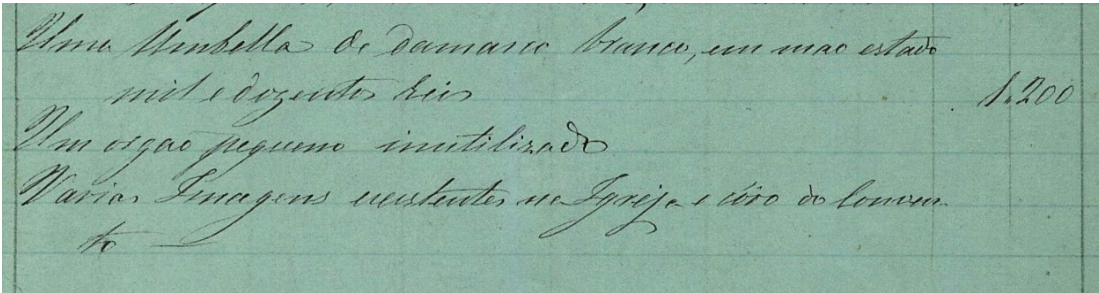 Uma Umbella de damasco branco, em mao estado
mil e dozentos reis 1.200
Um orgao pequeno inutilizado
Varias Imagens existentes na Igreja e côro do Conven
to —